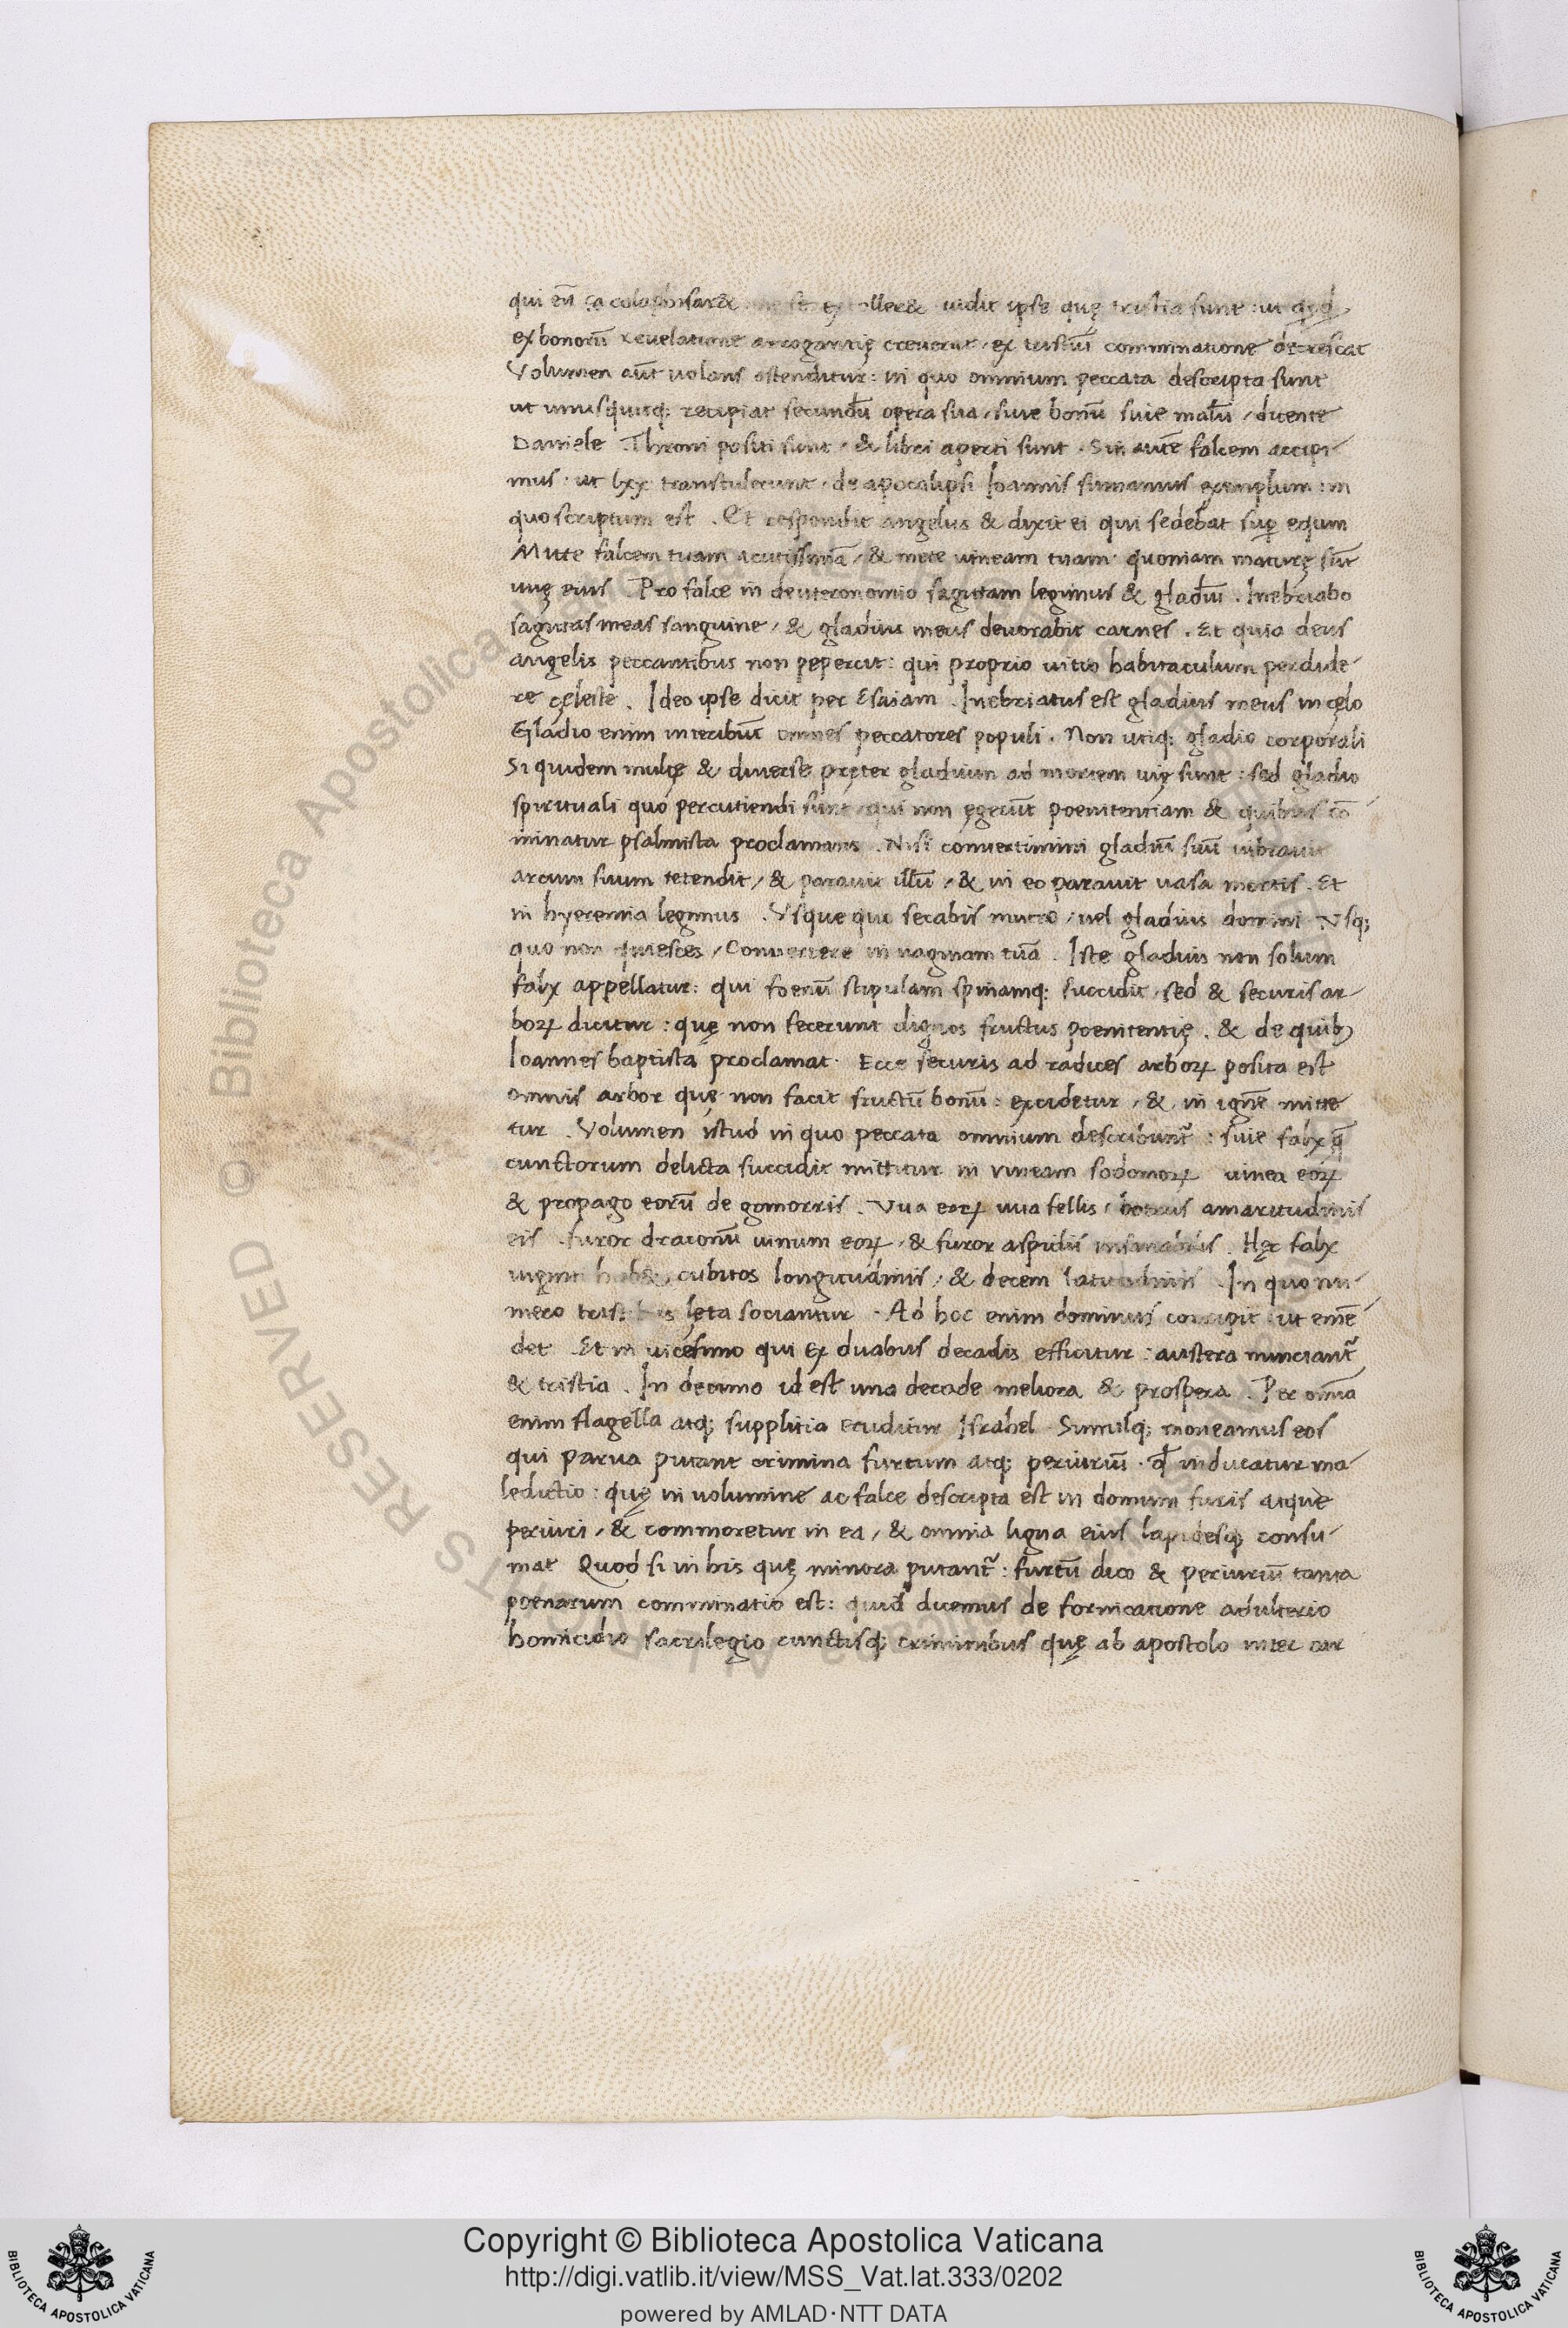 qui eū ça colaphisar& ne se extoller& uidit ipse quę tristia sunt : ut
ex bonorū reuelatione arrogantię creuerat / ex tristiū comminatione decrescat
Volumen aūt uolans ostenditur : in quo omnium peccata descripta sunt
ut unusquisq; recipiat secundū opera sua / siue bonū siue malū / dicente
Daniele . Throni positi sunt / & libri aperti sunt . Sin autē falcem accipi-
mus : ut lxx transtulerunt / de apocalipsi Ioannis sumamus exemplum : in
quo scriptum est . Et respondit angelus & dixit ei qui sedebat sup equm
Mitte falcem tuam acutissimā / & mete uineam tuam quoniam maturę sūt
uuę eius Pro falce in deuteronomio sagittam legimus & gladiū . Inebriabo
sagittas meas sanguine / & gladius meus deuorabit carnes . Et quia deus
angelis peccantibus non pepercit : qui proprio uitio habitaculum perdide-
re cęleste . Ideo ipse dicit per Esaiam . Inebriatus est gladius meus in cęlo
Gladio enim interibūt omnes peccatores populi . Non utiq; gladio corporali
Si quidem multę & diuersę pręter gladium ad mortem uię sunt : sed gladio
spirituali quo percutiendi sunt / qui non ęgerūt poenitentiam & quibus cō-
minatur psalmista proclamans . Nisi conuertimini gladiū suū uibrauit
arcum suum tetendit / & parauit illū / & in eo parauit uasa mortis . Et
in hyeremia legimus . Vsque quo secabis mucro / uel gladius domini Vsq;
quo non quiesces / Conuertere in uaginam tuā . Iste gladius non solum
falx appellatur : qui foenū stipulam spinamq; succidit / sed & securis ar-
boꝝ dicitur : quę non fecerunt dignos fructus poenitentię . & de quibꝫ
Ioannes baptista proclamat . Ecce securis ad radices arboꝝ posita est
omnis arbor quę non facit fructū bonū : excidetur / & in ignē mitte
tur . Volumen istud in quo peccata omnium describunt᷑ : siue falx q̄
cunctorum delicta succidit mittitur in uineam sodomoꝝ uinea eoꝝ
& propago eorū de gomorris . Vua eoꝝ uua fellis / botrus amaritudinis
eis . furor draconū uinum eoꝝ / & furor aspidis insanabilis . Hęc falx
uiginti hab& cubitos longitudinis / & decem latitudinis . In quo nu-
mero tristibus lęta sociantur . Ad hoc enim dominus corripit : ut emē-
det . Et in uicesimo qui ex duabus decadis efficitur : austera nunciant᷑
& tristia . In decimo id est una decade meliora & prospera . Per omīa
enim flagella atq; supplitia eruditur Israhel . Simulq; moneamus eos
qui parua putant crimina furtum atq; periuriū . qd inducatur ma-
ledictio : quę in uolumine ac falce descripta est in domum furis atque
periuri / & commoretur in ea / & omnia ligna eius lapidesq; consu-
mat Quod si in his quę minora putant᷑ : furtū dico & periuriū tanta
poenarum comminatio est : quid dicemus de fornicatione adulterio
homicidio sacrilegio cunctisq; criminibus quę ab apostolo inter car
© Biblioteca Apostolica Vaticana ALL RIGHTS RESERVED
Copyright © Biblioteca Apostolica Vaticana
http://digi.vatlib.it/view/MSS_Vat.lat.333/0202
powered by AMLAD·NTT DATA
BIBLIOTECA APOSTOLICA VATICANA
BIBLIOTECA APOSTOLICA VATICANA